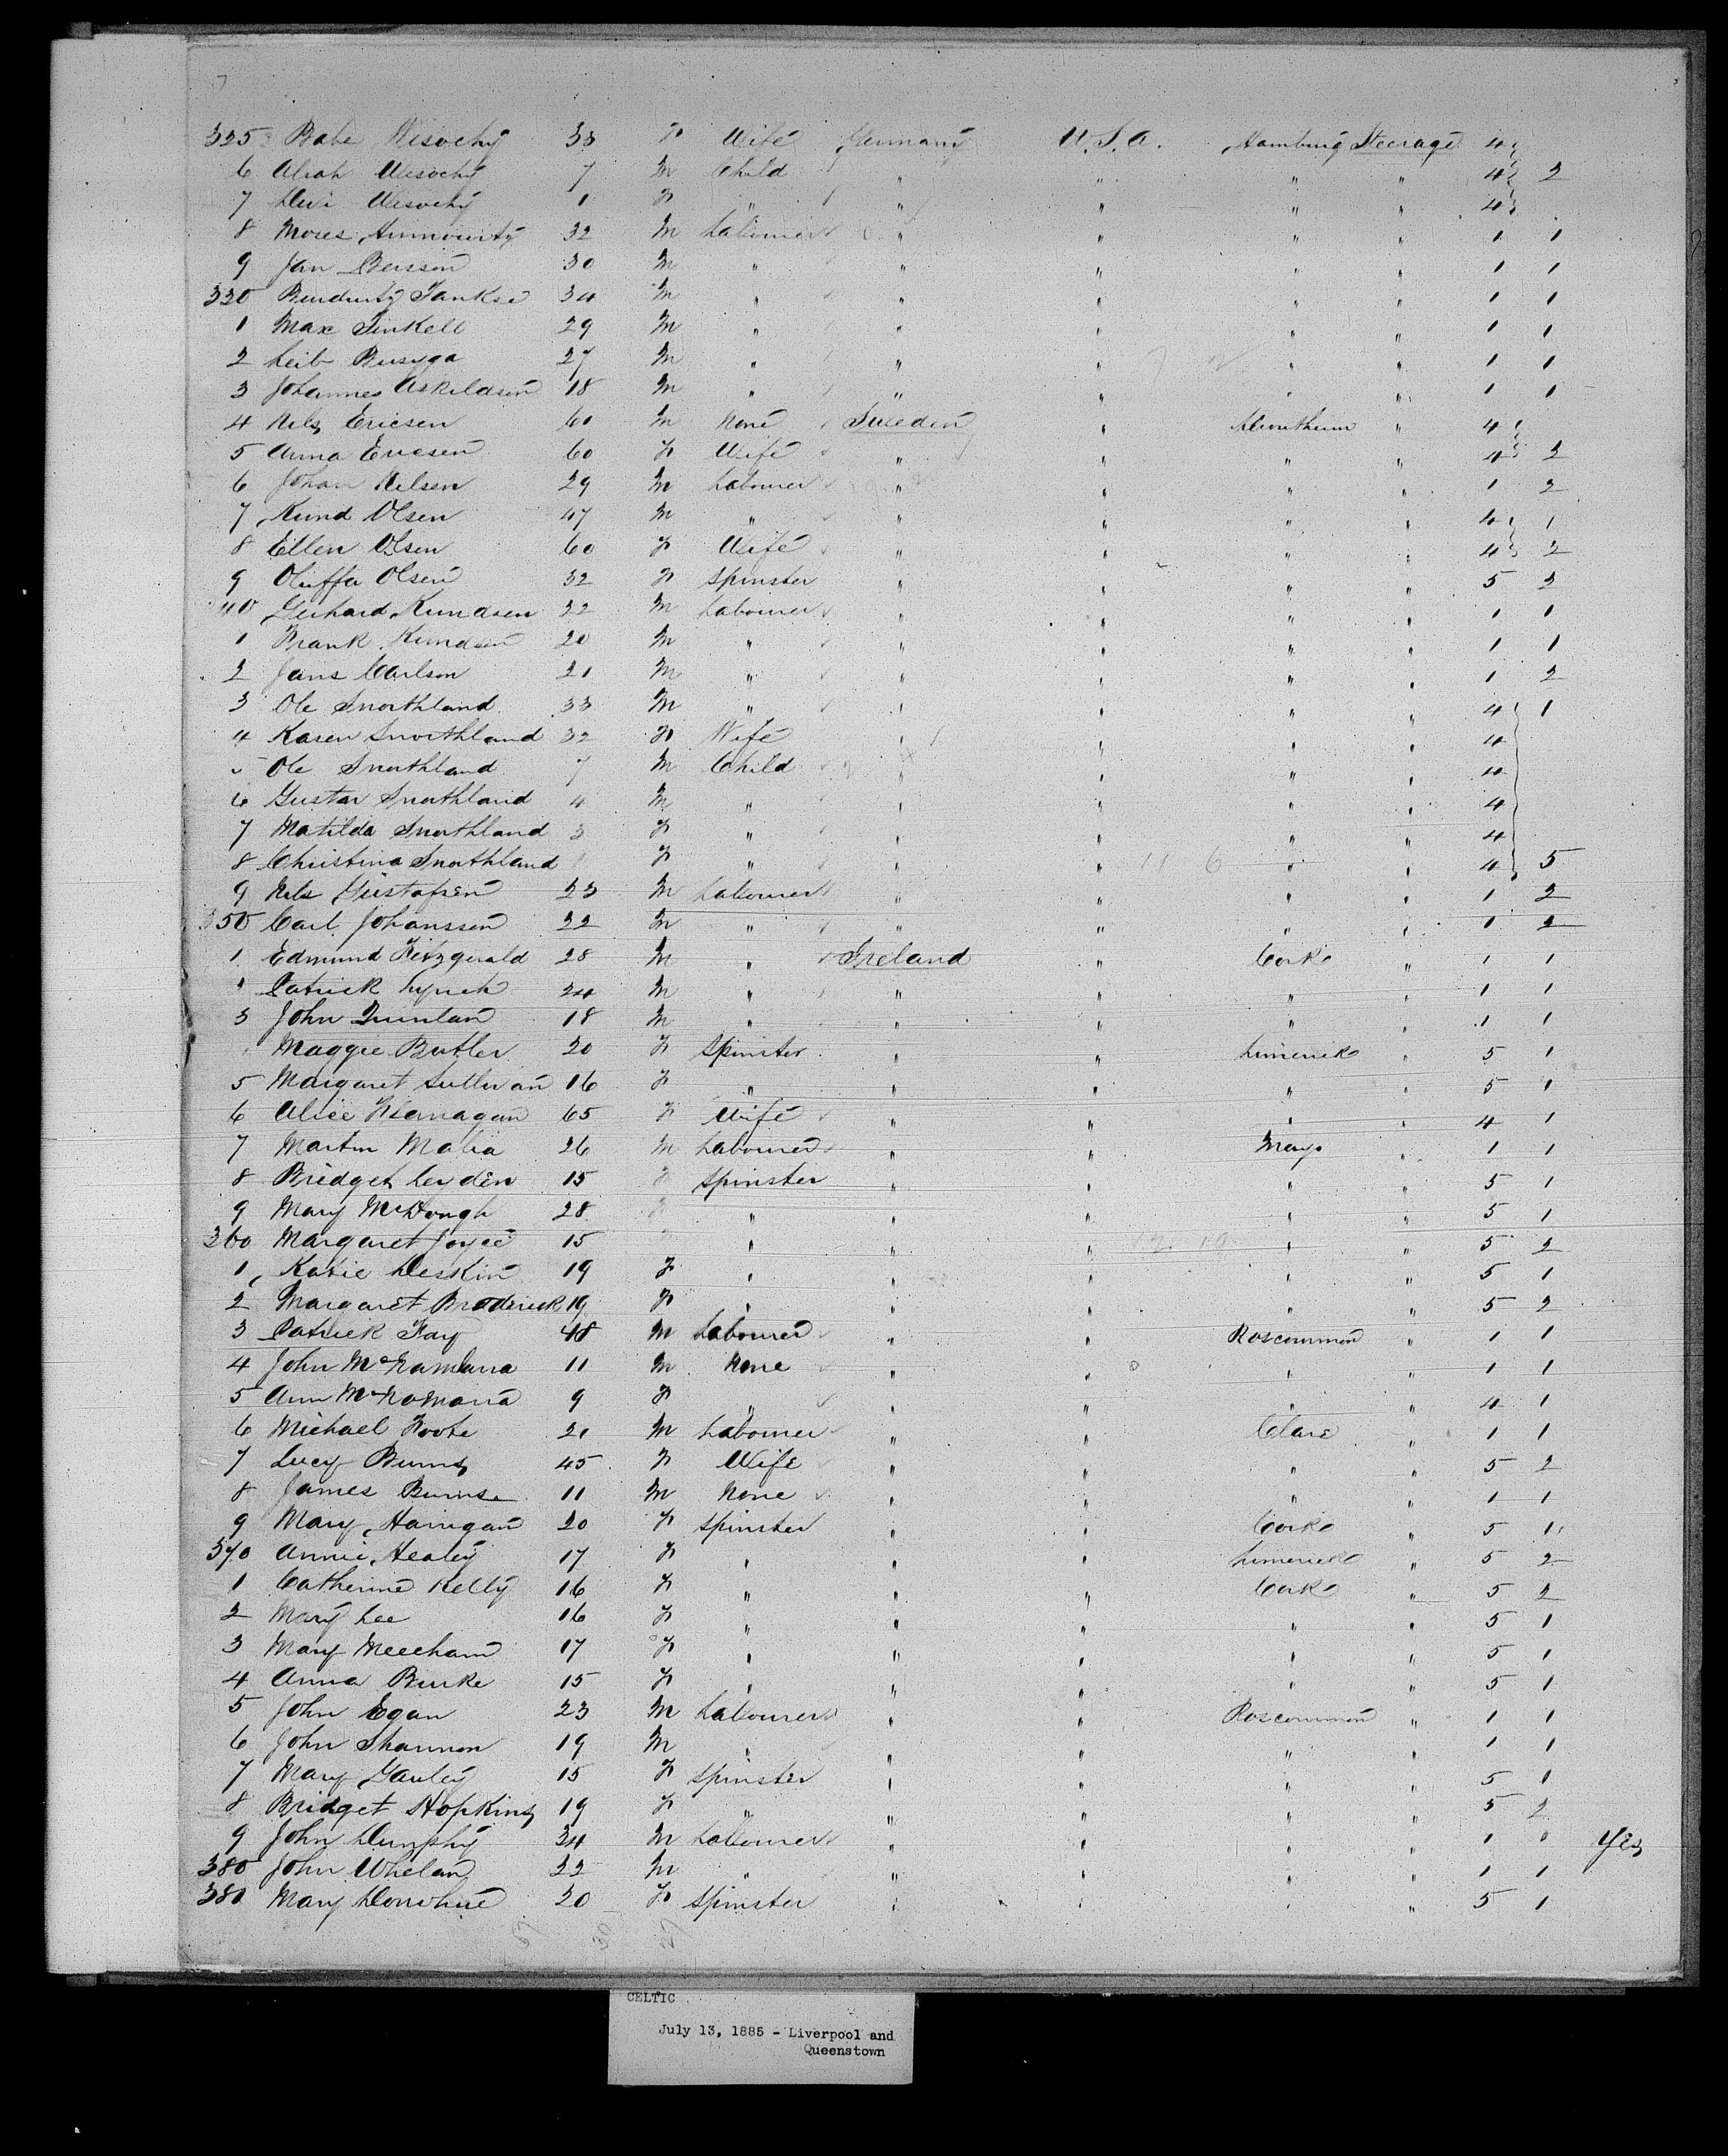 325 Babe Wisochy 33 F Wife Germany U.S.A. Hamburg Steerage 4
6 Abrah Wisochy 7 M Child " " " " 4 2
7 Wisochy 1 F " " " " " 4
8 Moses 32 M Labourer " " " " 1 1
9 Jan 30 M " " " " " 1 1
330 34 M " " " " " 1 1
1 Max Finkell 29 M " " " " " 1 1
2 Leib Busyga 27 M " " " " " 1 1
3 Johannes Askildsen 18 M " " " " " 1 1
4 Nels Ericsen 60 M None Sweden " " 4
5 Anna Ericsen 60 F Wife " " " " 4 2
6 Johan Nelsen 29 M Labourer " " " " 1 2
7 Kund Olsen 47 M " " " " " 4 1
8 Ellen Olsen 60 F Wife " " " " 4 2
9 Oluffa Olsen 32 F Spinster " " " " 5 2
40 Gerhard Kundsen 22 M Labourer " " " " 1 1
1 Frank Kundsen 20 M " " " " " 1 1
2 Jans Carlson 21 M " " " " " 1 2
3 Ole Snorthland 33 M " " " " " 4 1
4 Karen Snorthland 32 F Wife " " " " 4
5 Ole Snorthland 7 M Child " " " " 4
6 Gustav Snorthland 4 M " " " " " 4
7 Matilda Snorthland 3 F " " " " " 4
8 Christina Snorthland F " " " " " 4 5
9 Nils Gustafsen 23 M Labourer " " " " 1 2
350 Carl Johanssen 22 M " " " " " 1 2
1 Edmund Fitzgerald 28 M " Ireland " Cork " 1 1
Patrick Lynch 24 M " " " " " 1 1
3 John Quinlan 18 M " " " " " 1 1
Maggie Butler 20 F Spinster " " Limerick " 5 1
5 Margaret Sullivan 16 F " " " " " 5 1
6 Alice Flanagan 65 F Wife " " " " 4 1
7 Martin Malia 26 M Labourer " " Mayo " 1 1
8 Bridget Leyden 15 F Spinster " " " " 5 1
9 Mary McDongh 28 " " " " " 5 1
360 Margaret Joyce 15 " " " " " 5 2
1 Katie Deskin 19 F " " " " " 5 1
2 Margaret Broderick 19 F " " " " " 5 2
3 Patrick Fay 48 M Labourer " " Roscommon " 1 1
4 John McNamara 11 M None " " " " 1 1
5 Ann McNamara 9 F " " " " " 4 1
6 Michael Foote 21 M Labourer " " Clare " 1 1
7 Lucy Burns 45 F Wife " " " " 5 2
8 James Burns 11 M None " " " " 1 1
9 Mary Harrigan 20 F Spinster " " Cork " 5 1
370 Annie Healey 17 F " " " Limerick " 5 2
1 Catherine Kelly 16 F " " " Cork " 5 2
2 Mary Lee 16 F " " " " " 5 1
3 Mary Meecham 17 F " " " " " 5 1
4 Anna Burke 15 F " " " " " 5 1
5 John Egan 23 M Labourer " " Roscommon " 1 1
6 John Shannon 19 M " " " " " 1 1
7 Mary Ganley 15 F Spinster " " " " 5 1
8 Bridget Hopkins 19 F " " " " " 5 2
9 John Dunphy 34 M Labourer " " " " 1 0 Yes
380 John Whelan 22 M " " " " " 1 1
380 Mary Donohue 20 F Spinster " " " " 5 1
CELTIC
July 13, 1885 - Liverpool and
Queenstown